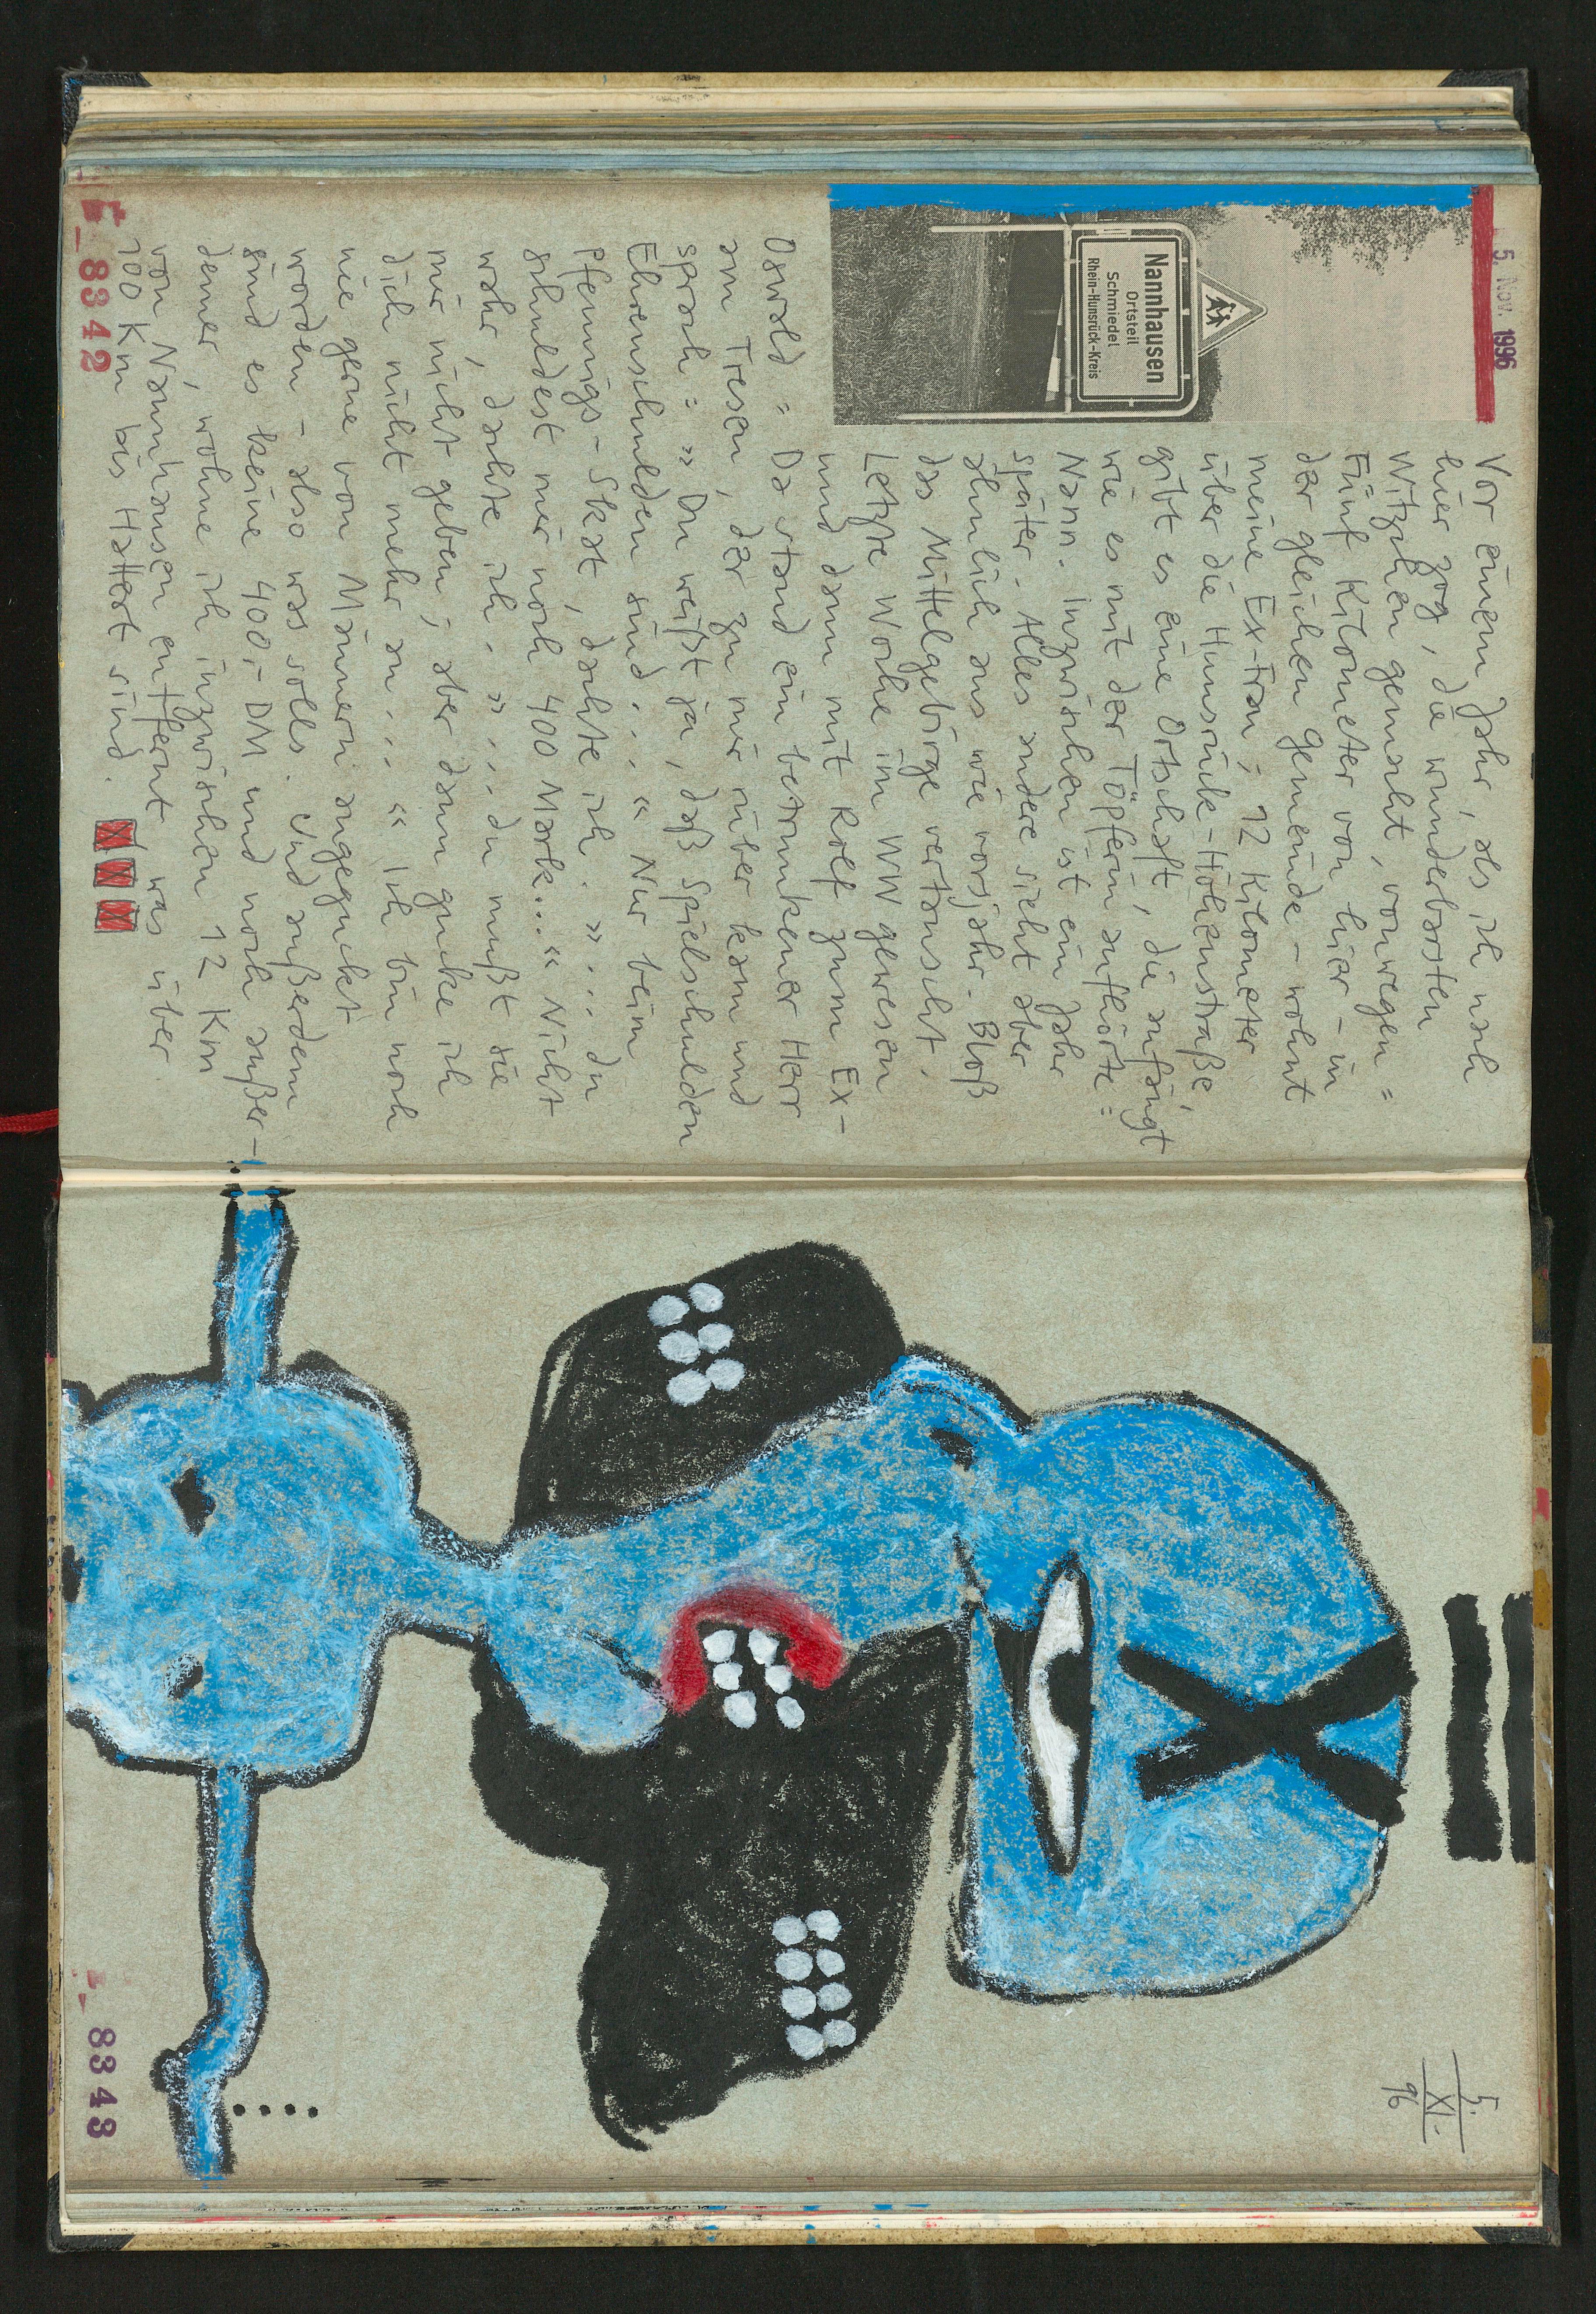 5. Nov. 1996
Nannhausen
Ortsteil
Schmiedel
Rhein-Hunsrück-Kreis
Vor einem Jahr, als ich nach
hier zog, die wunderbarsten
Witzchen gemacht, vonwegen =
Fünf Kilometer von hier – in
der gleichen Gemeinde – wohnt
meine Ex-Frau; 12 Kilometer
über die Hunsrück-Höhenstraße,
gibt es eine Ortschaft, die anfängt
wie es mit der Töpferin aufhörte =
Nann. Inzwischen ist ein Jahr
später. Alles andere sieht aber
ähnlich aus wie vorsjahr. Bloß
das Mittelgebirge vertauscht.
Letzte Woche im WW gewesen
und dann mit Rolf zum Ex-
Oswald = Da stand ein betrunkener Herr
am Tresen, der zu mir rüber kam und
sprach = »Du weißt ja, daß Spielschulden
Ehrenschulden sind...« Nur beim
Pfennigs-Skat, dachte ich. »... du
schuldest mir noch 400 Mark...« Nicht
wahr, dachte ich. »... du mußt sie
mir nicht geben; aber dann gucke ich
dich nicht mehr an...« Ich bin noch
nie gerne von Männern angeguckt
worden – also was solls. Und außerdem
sind es keine 400,- DM und noch außer-
demer, wohne ich inzwischen 12 Km
von Nannhausen entfernt was über
100 Km bis Hattert sind.
E_8342
5.
XI.
96
E_8343